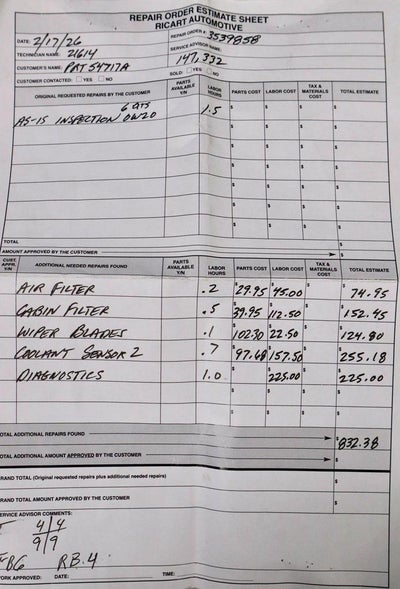 REPAIR ORDER ESTIMATE SHEET
RICART AUTOMOTIVE
DATE: 2/17/26 REPAIR ORDER #: 3539858
TECHNICIAN NAME: 21614 SERVICE ADVISOR NAME: 147,332
CUSTOMER'S NAME: PAT54717A SOLD: YES NO
CUSTOMER CONTACTED: YES NO
ORIGINAL REQUESTED REPAIRS BY THE CUSTOMER PARTS AVAILABLE Y/N LABOR HOURS PARTS COST LABOR COST TAX & MATERIALS COST TOTAL ESTIMATE
6 QTS
AS-IS INSPECTION 0W20 1.5 $ $ $ $
$ $ $ $
$ $ $ $
$ $ $ $
$ $ $ $
$ $ $ $
TOTAL $
AMOUNT APPROVED BY THE CUSTOMER $
CUST. APPR. Y/N ADDITIONAL NEEDED REPAIRS FOUND PARTS AVAILABLE Y/N LABOR HOURS PARTS COST LABOR COST TAX & MATERIALS COST TOTAL ESTIMATE
AIR FILTER .2 $29.95 $45.00 $ $74.95
CABIN FILTER .5 $39.95 $112.50 $ $152.45
WIPER BLADES .1 $102.30 $22.50 $ $124.80
COOLANT SENSOR 2 .7 $97.68 $157.50 $ $255.18
DIAGNOSTICS 1.0 $ $225.00 $ $225.00
$ $ $ $
$ $ $ $
TOTAL ADDITIONAL REPAIRS FOUND $832.38
TOTAL ADDITIONAL AMOUNT APPROVED BY THE CUSTOMER $
GRAND TOTAL (Original requested repairs plus additional needed repairs) $
GRAND TOTAL AMOUNT APPROVED BY THE CUSTOMER $
SERVICE ADVISOR COMMENTS:
4 4
9 9
B6 RB.4
WORK APPROVED: DATE: TIME: